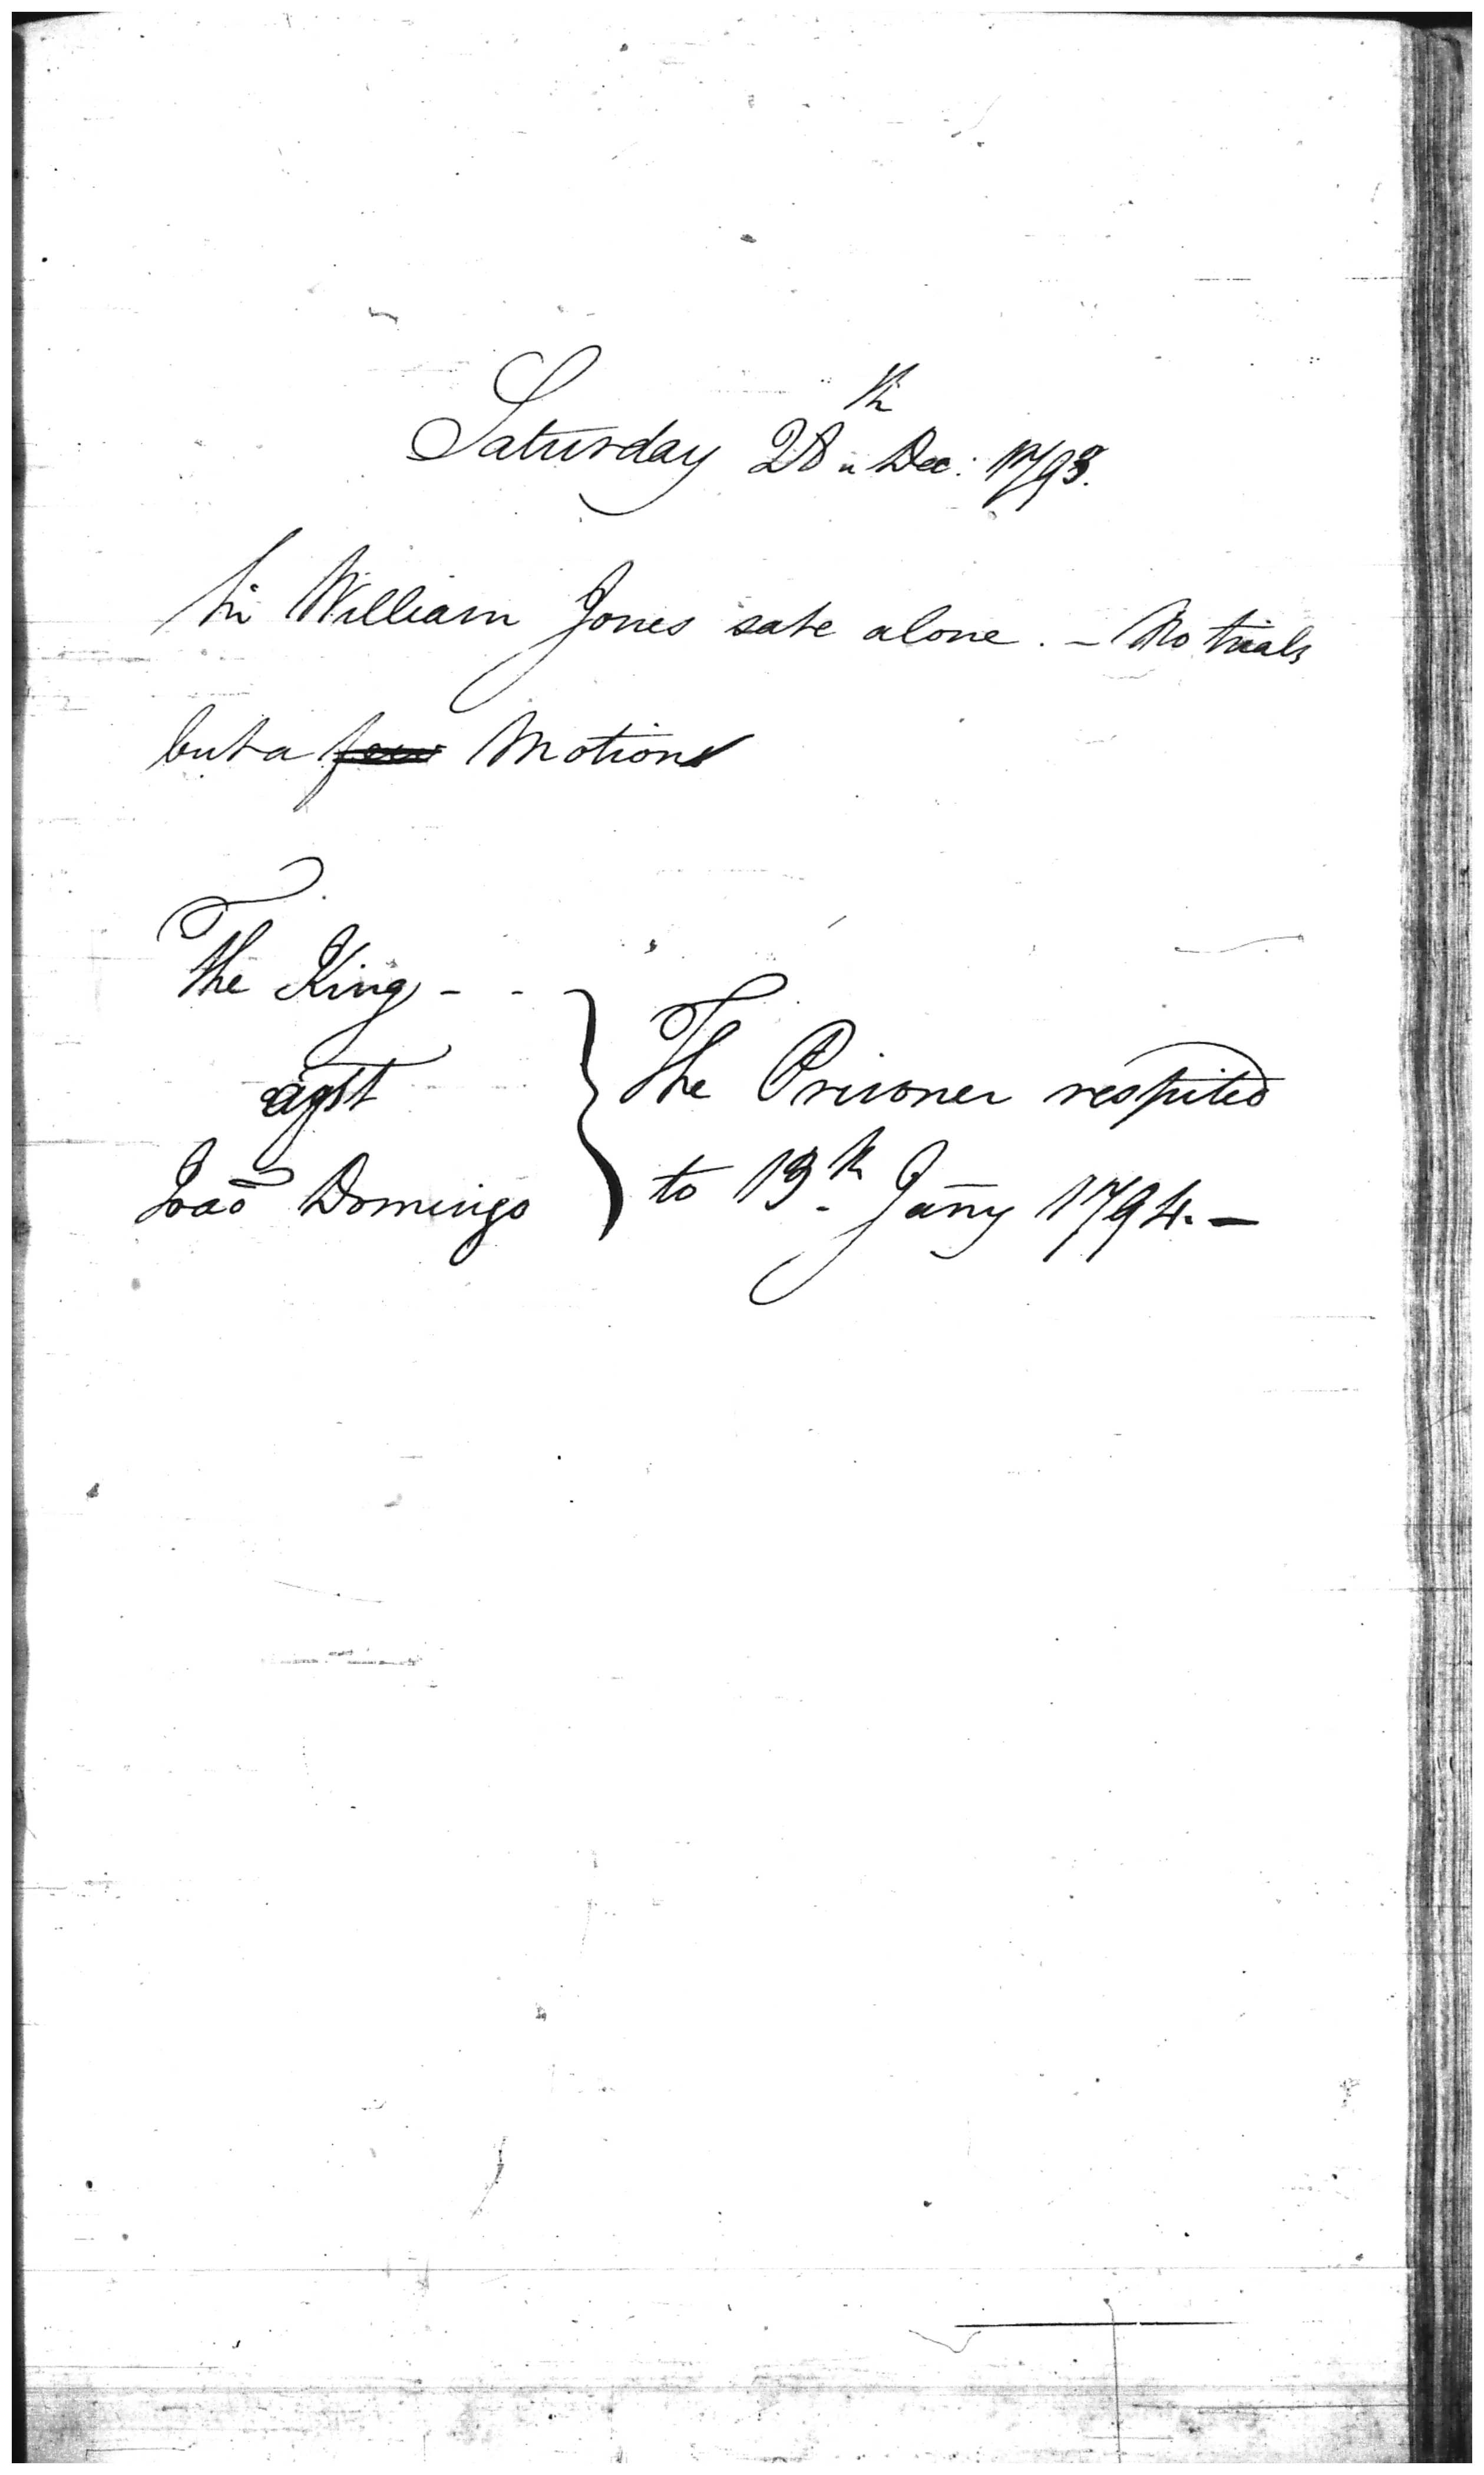 Saturday 28th Dec: 1793.
Sir William Jones sate alone. – No trials
but a few Motions
The King - -
agst
Joaõ Domingo
The Prisoner respited
to 13th Jany 1794. –